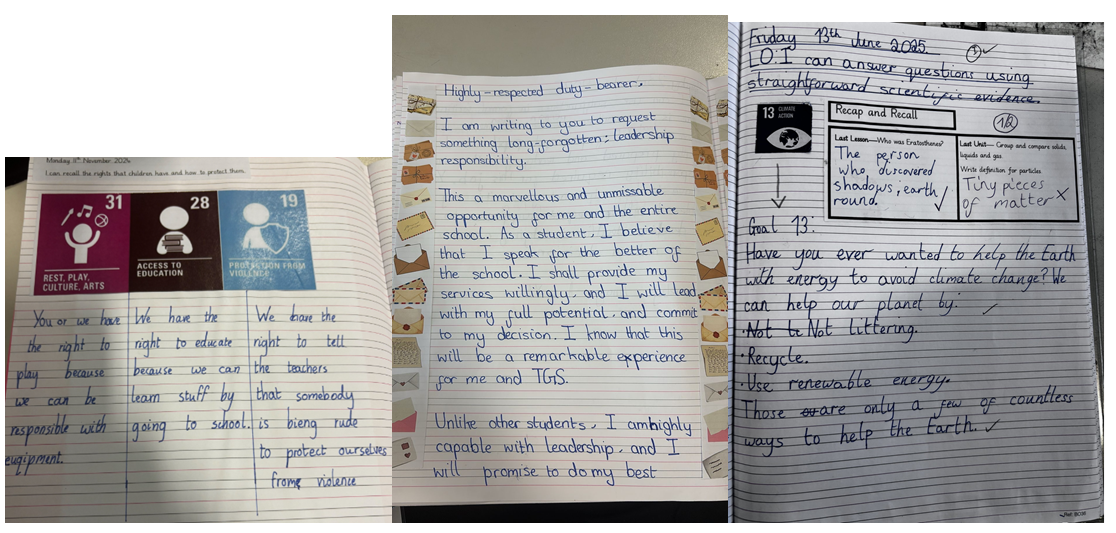 Monday 11th November 2024
I can recall the rights that children have and how to protect them.
31
REST, PLAY,
CULTURE, ARTS
28
ACCESS TO
EDUCATION
19
PROTECTION FROM
VIOLENCE
You or we have
the right to
play because
we can be
responsible with
euqipment.
We have the
right to educate
because we can
learn stuff by
going to school.
We have the
right to tell
the teachers
that somebody
is bieng rude
to protect ourselves
from violence
Highly-respected duty-bearer,
I am writing to you to request
something long-forgotten; leadership
responsibility.
This a marvellous and unmissable
opportunity for me and the entire
school. As a student, I believe
that I speak for the better of
the school. I shall provide my
services willingly, and I will lead
with my full potential, and commit
to my decision. I know that this
will be a remarkable experience
for me and TGS.
Unlike other students, I am highly
capable with leadership, and I
will promise to do my best
Friday 13th June 2025
LO: I can answer questions using
straightforward scientific evidence.
13 CLIMATE
ACTION
Recap and Recall
Last Lesson—Who was Eratosthenes?
The person
who discovered
shadows, earth
round.
Last Unit— Group and compare solids,
liquids and gas.
Write definition for particles
Tiny pieces
of matter
1/2
Goal 13:
Have you ever wanted to help the Earth
with energy to avoid climate change? We
can help our planet by:
·Not Littering.
·Recycle.
·Use renewable energy.
Those are only a few of countless
ways to help the Earth.